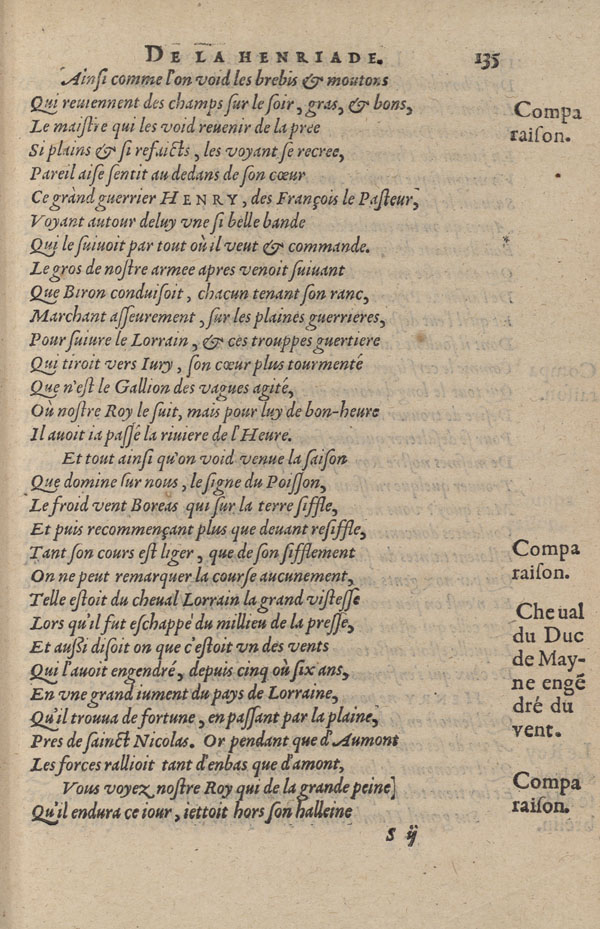 DE LA HENRIADE. 135
Ainsi comme l'on void les brebis & moutons
Qui reuiennent des champs sur le soir, gras, & bons,
Compa
raison.
Le maistre qui les void reuenir de la pree
Si plains & si refaicts, les voyant se recree,
Pareil aise sentit au dedans de son cœur
Ce grand guerrier HENRY, des François le Pasteur,
Voyant autour deluy vne si belle bande
Qui le suiuoit par tout où il veut & commande.
Le gros de nostre armee apres venoit suiuant
Que Biron conduisoit, chacun tenant son ranc,
Marchant asseurement, sur les plaines guerrieres,
Pour suiure le Lorrain, & cès trouppes guertiere
Qui tiroit vers Iury, son cœur plus tourmenté
Que n'est le Gallion des vagues agité,
Où nostre Roy le suit, mais pour luy de bon-heure
Il auoit ia passé la riuiere de l'Heure.
Et tout ainsi qu'on void venue la saison
Que domine sur nous, le signe du Poisson,
Le froid vent Boreas qui sur la terre siffle,
Et puis recommençant plus que deuant resiffle,
Tant son cours est liger, que de son sifflement
On ne peut remarquer la course aucunement,
Compa
raison.
Telle estoit du cheual Lorrain la grand vistesse
Lors qu'il fut eschappé du millieu de la presse,
Et aussi disoit on que c'estoit vn des vents
Qui l'auoit engendré, depuis cinq où six ans,
En vne grand iument du pays de Lorraine,
Qu'il trouua de fortune, en passant par la plaine,
Pres de sainct Nicolas. Or pendant que d'Aumont
Cheual
du Duc
de May-
ne engẽ
dré du
vent.
Les forces rallioit tant d'enbas que d'amont,
Vous voyez nostre Roy qui de la grande peine]
Qu'il endura ce iour, iettoit hors son halleine
Compa
raison.
S ij